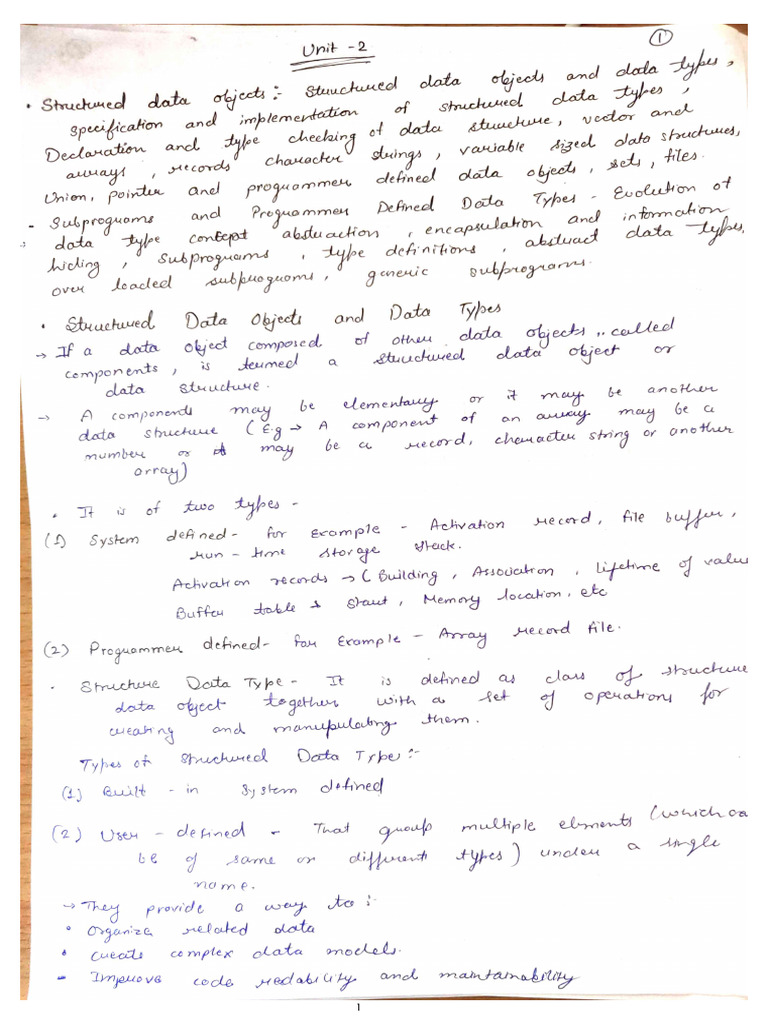 1
Unit - 2
• Structured data objects :- Structured data objects and data types,
specification and implementation of structured data types,
Declaration and type checking of data structure, vector and
arrays, records character strings, variable sized data structures,
Union, pointer and programmer defined data objects, sets, files.
- Subprograms and Programmer Defined Data Types - Evolution of
data type concept abstraction, encapsulation and information
hiding, Subprograms, type definitions, abstract data types,
over loaded subprograms, generic subprograms.
• Structured Data Objects and Data Types
→ If a data object composed of other data objects, called
components, is termed a structured data object or
data structure.
→ A components may be elementary or it may be another
data structure (E.g → A component of an array may be a
number or may be a record, character string or another
array)
• It is of two types -
(1) System defined - for Example - Activation record, file buffer,
run - time storage stack.
Activation records → (Building, Association, lifetime of value
Buffer table start, Memory location, etc
(2) Programmer defined - for Example - Array record file.
• Structure Data Type - It is defined as class of structure
data object together with a set of operations for
creating and manupulating them.
Types of Structured Data Type :-
(1) Built - in System defined
(2) User - defined - That group multiple elments (which ca
be of same or different types) under a single
name.
→ They provide a way to :-
• Organize related data
• Create complex data models.
- Improve code redability and maintainability
1